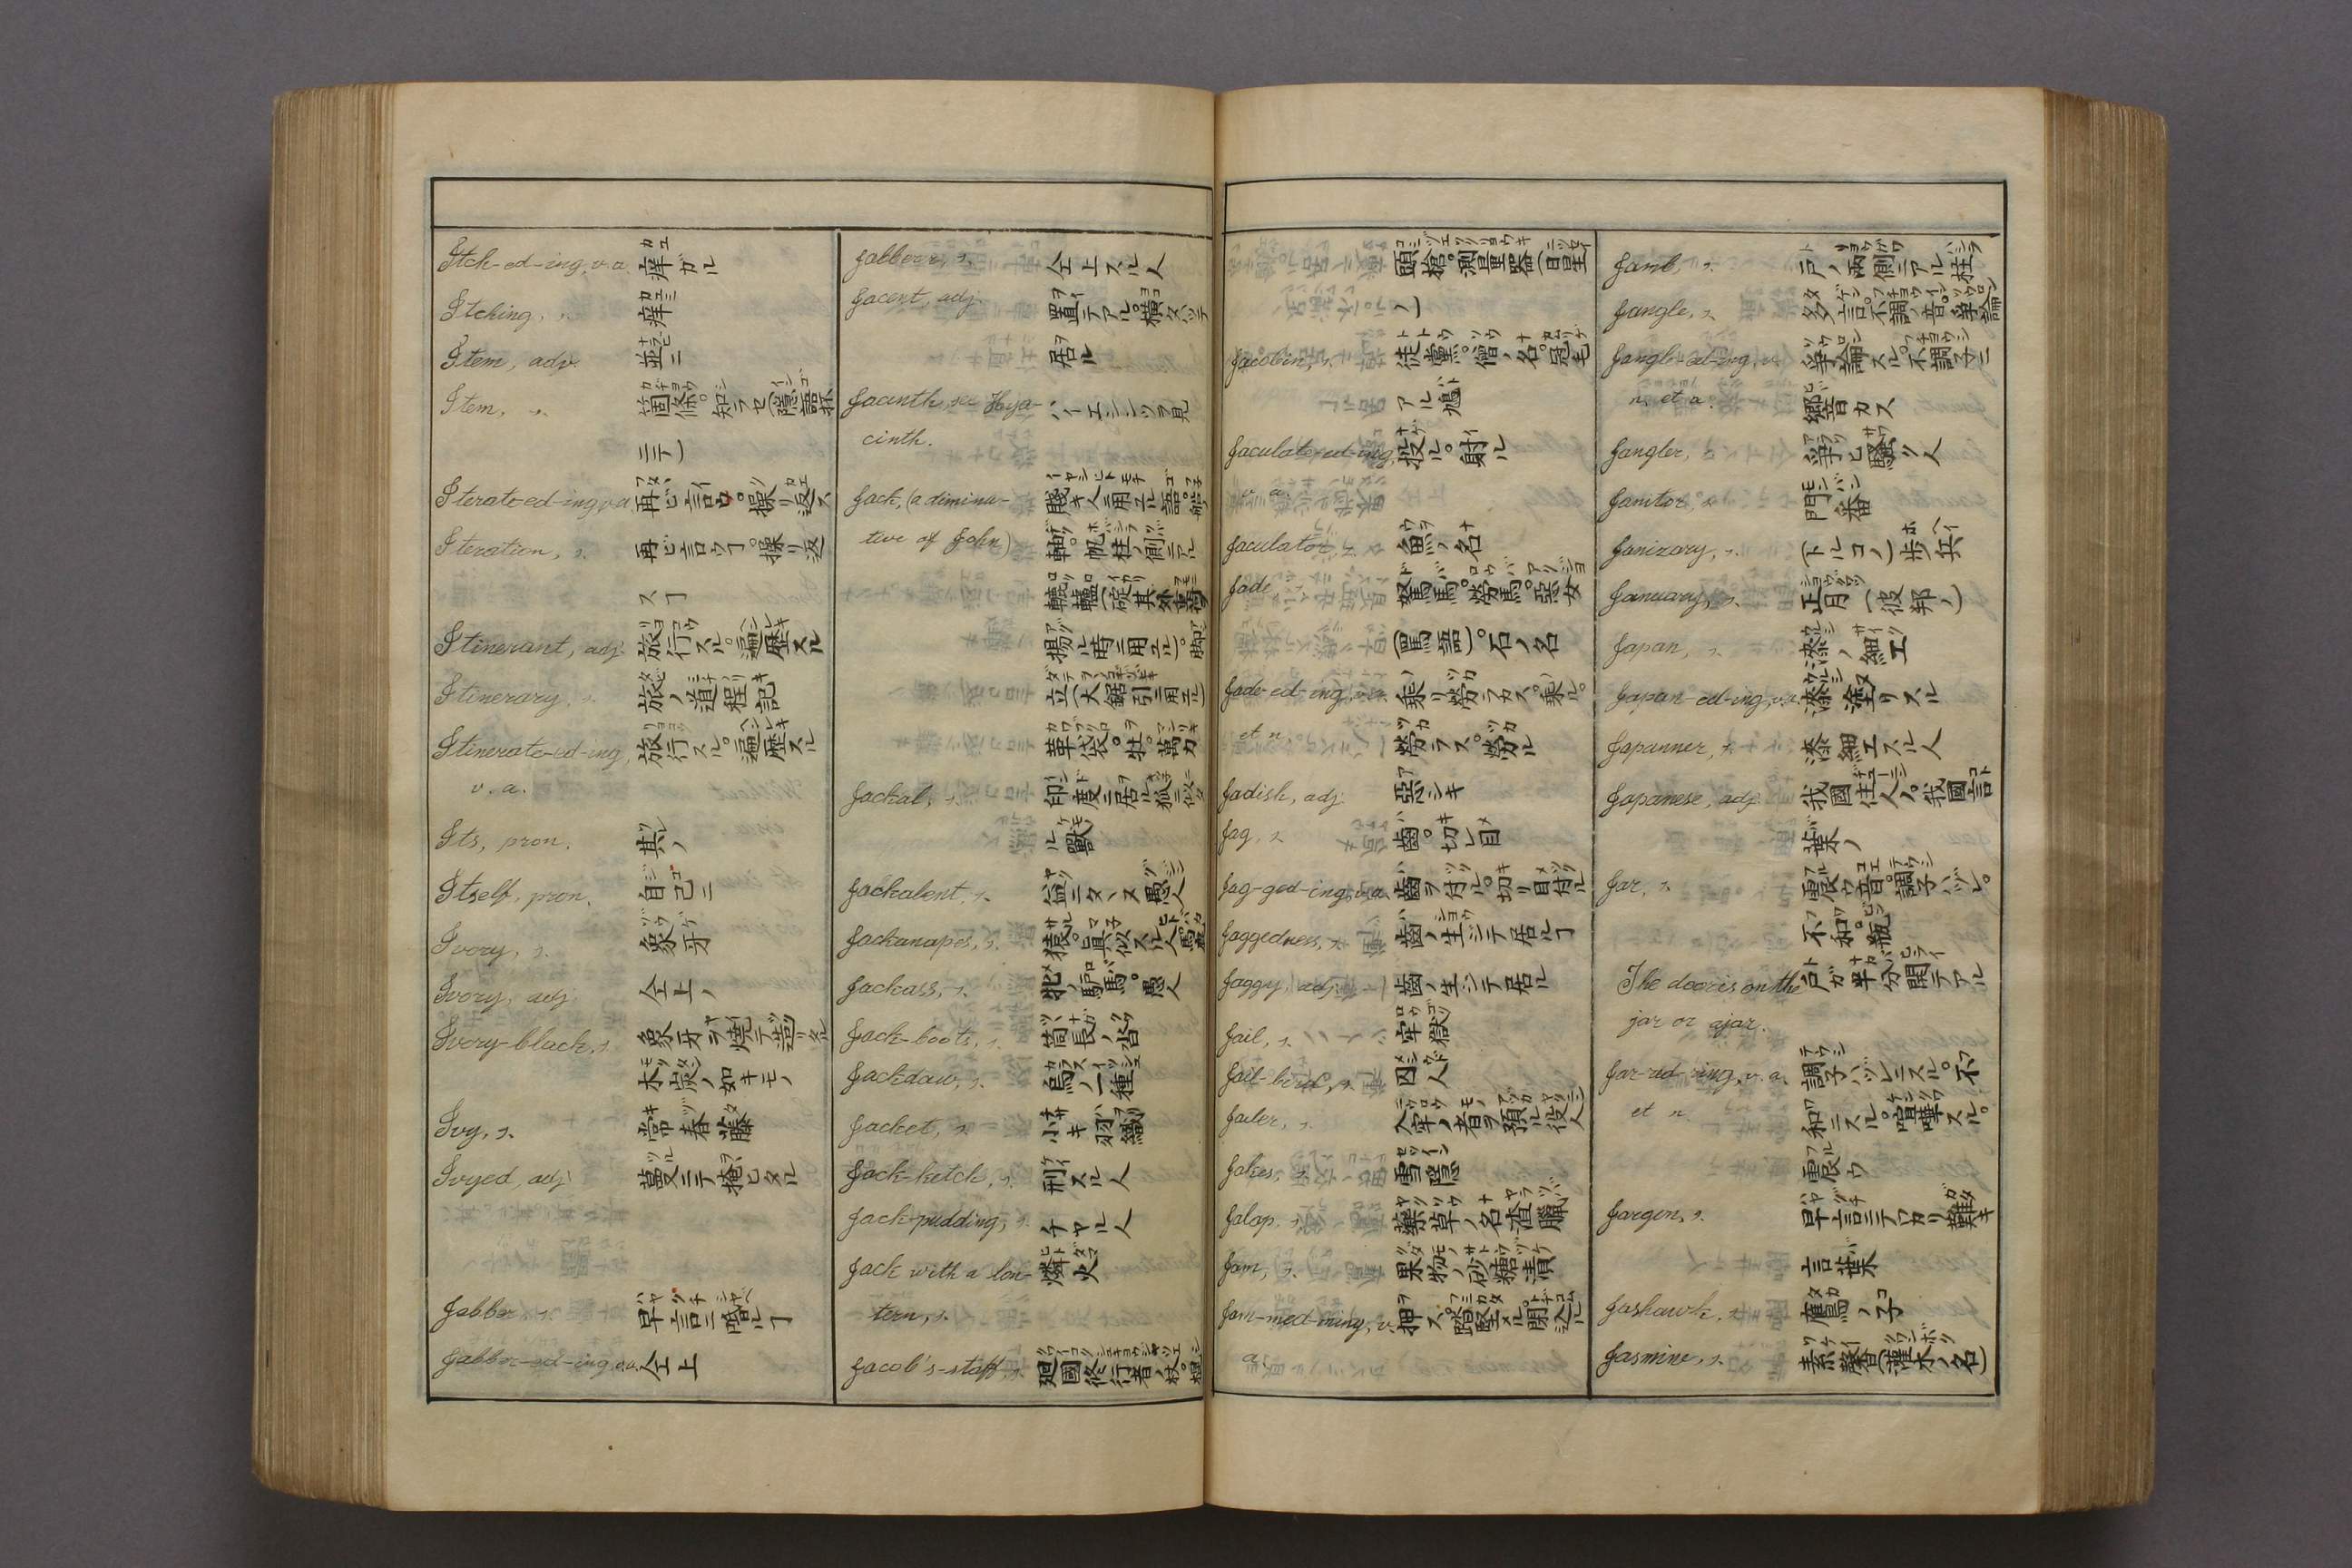 Itch-ed-ing, v.a. 痒ガル
Itching, s. 痒ミ
Item, adv. 並ニ
Item, s. 箇條。知ラセ(隠語抔
ニテ)
Iterate-ed-ing, v.a. 再ビ言ウ。操リ返ス
Iteration, s. 再ビ言ウヿ。操リ返
スヿ
Itinerant, adj. 旅行スル。遍歴スル
Itinerary, s. 旅ノ道程記
Itinerate-ed-ing, 旅行スル。遍歴スル
v. a.
Its, pron. 其ノ
Itself, pron. 自己ニ
Ivory, s. 象牙
Ivory, adj. 仝上ノ
Ivory-black, s. 象牙ヲ焼テ造リタル
木炭ノ如キモノ
Ivy, s. 常春藤
Ivyed, adj. 蔓ニテ掩ヒタル
Jabber, s. 早言ニ囁ルヿ
Jabber-ed-ing, v.a. 仝上
Jabberer, s. 仝上スル人
Jacent, adj. 置テアル。横タハッテ
居ル
Jacinth, see Hya- ハイエシンツヲ見
cinth.
Jack, (a diminu- 賤キ人ニ用ユル語。
tive of John) 轴。帆柱ノ側ニアル
轆轤(碇其外
揚ル時ニ用ユル)。
立(大鋸引ニ用ユ)
革袋。牡。萬力
Jackal, s. 印度ニ居ル狐ニ似タ
ル獸
Jackalent, s. 益ニタヽヌ愚人
Jackanapes, s. 猿。真似スル人。
Jackass, s. 牝ノ驢馬。愚人
Jack-boots, s. 筒長ノ沓
Jackdaw, s. 烏ノ一種
Jacket, s. 小キ羽織
Jack-ketch, s. 刑スル人
Jack-pudding, s. チヤル人
Jack with a lan- 燐火
tern, s.
Jacob's-staff, s. 廻國修行者ノ杖。
頭槍。測量器(日星
ノ)
Jacobin, s. 徒黨。僧ノ名。冠毛
アル鳩
Jaculate-ed-ing, 投ル。射ル
v. a.
Jaculator, s. 魚ノ名
Jade 駑馬。勞馬。惡女
(罵語)。石ノ名
Jade-ed-ing, v.a. 乗リ勞ラカス。乗ル。
et n. 勞ラス。勞ル
Jadish, adj. 惡シキ
Jag, s. 齒。切レ目
Jag-ged-ing, v.a. 齒ヲ付ル。切リ目付ル
Jaggedness, s. 齒ノ生シテ居ルヿ
Jaggy, adj. 齒ノ生シテ居ル
Jail, s. 牢獄
Jail-bird, s. 囚人
Jailer, s. 入牢ノ者ヲ預ル役人
Jakes, s. 雪隠
Jalap, s. 藥草ノ名渣臘
Jam, s. 果物ノ砂糖漬
Jam-med-ming, v. 押ス。踏堅メル。閉込ル
a.
Jamb, s. 戸ノ兩側ニアル柱
Jangle, s. 多言。不調ノ音。爭論
Jangle-ed-ing, v. 爭論スル。不調子ニ
n. et a. 響カス
Jangler, s. 爭ヒ騒グ人
Janitor, s. 門番
Janizary, s. (トルコノ)歩兵
January, s. 正月(彼邦ノ)
Japan, s. 漆ノ細工
Japan-ed-ing, v.a. 漆塗リスル
Japanner, s. 漆細工スル人
Japanese, adj. 我國住人ノ。我國言
葉ノ
Jar, s. 震ウ音。調子ハヅレ。
不和。瓶
The door is on the 戸ガ半分開テアル
jar or ajar.
Jar-red-ring, v.a. 調子ハヅレニスル。不
et n. 和ニスル。喧嘩スル。
震ウ
Jargon, s. 早言ニテワカリ難キ
言葉
Jashawk, s. 鷹ノ子
Jasmine, s. 素馨(灌木ノ名)